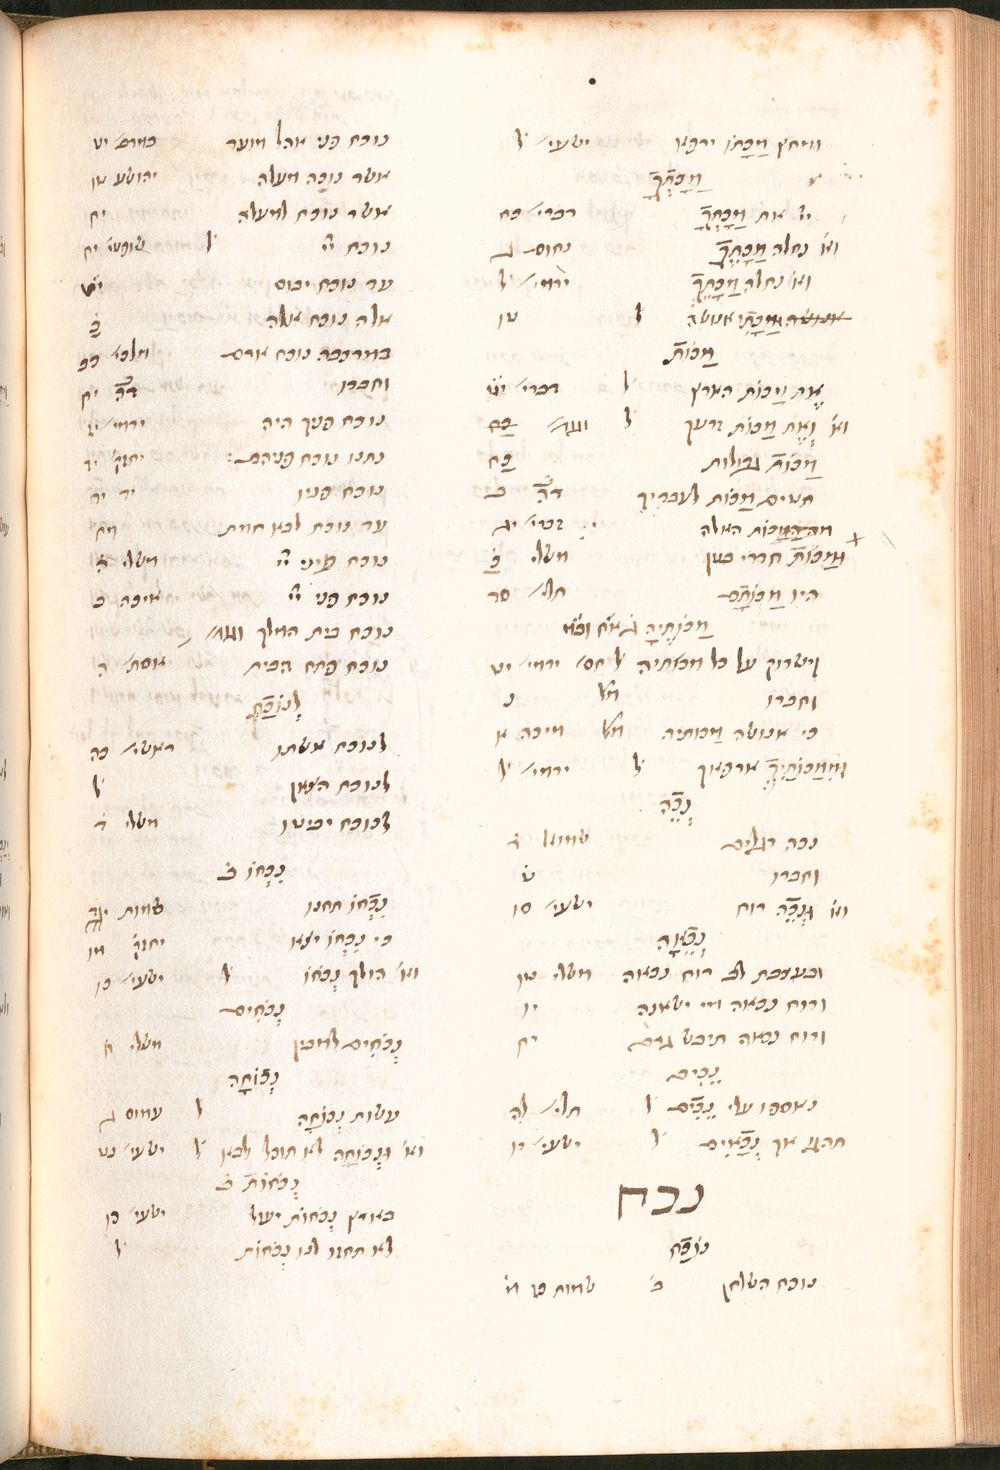 ומחץ מַכָּתוֹ ירפא ישעי׳ ל
מַכָּתְךָ
את מַכָּתְךָ דברי׳ כח
וא׳ נחלה מַכָּתֶךָ נחום ג
וא׳ נחלה מַכָּתֵךְ ירמי׳ ל
אנושה ל טו
מַכּוֹת
אֶת מַכּוֹת הארץ ל דברי׳ יט
וא׳ וְאֶת מַכּוֹת זרעך ל כח
מַכּוֹת גדולות כח
חטים מַכּוֹת לעבדיך דה ב
מה המכות האלה זכרי׳ יג
וּמַכּוֹת חדרי בטן משלי כ
היו מַכּוֹתָם תהלי׳ סד
מַכּוֹתֶיהָ
וישרוק על כל מכותיה ל ירמי׳ יט
וחברו נ
כי אנושה מכותיה מיכה א
וּמִמַּכּוֹתַיִךְ ארפאך ל ירמי׳ ל
נְכֵה
נכה רגלים שמואל ד
וחברו ט
וא׳ וּנְכֵה רוח ישעי׳ סו
נְכֵאָה
ובעצבת לב רוח נכאה משלי טו
ורוח נכאה מי ישאנה יו
ורוח נכאה תיבש גרם יח
נֵכִים
נאספו עלי נֵכִים ל תהלי׳ לה
תהגו אך נְכָאִים ל ישעי׳ יו
נכח
נֹכַח
נוכח השלחן ב׳ שמות כו מ׳
נוכח פני אהל מועד במדב׳ יט
אשר נוכח מעלה יהושע טו
אשר נוכח למעלה יח
נוכח יי ל שופטי׳ יח
עד נוכח יבוס יט
אלה נוכח אלה כ
במרכבה נוכח ארם מלכי׳ כב
וחברו דה יח
נוכח פניך היה ירמי׳ יז
נתנו נוכח פניהם יחזק׳ יד
נוכח פניו יד יד
עד נוכח לבא חמת מח
נוכח עיני יי משלי ה
נוכח פני יי איכה ב
נוכח בית המלך
נוכח פתח הבית אסת׳ ה
לְנוֹכַח
לנוכח אשתו ראשי׳ כה
לנוכח הצאן ל
לנוכח יביטו משלי ד
נִכְחוֹ ב
נִכְחוֹ תחנו שמות יד
כי נִכְחוֹ יצא יחזק׳ מו
וא׳ הולך נְכֹחוֹ ל ישעי׳ נז
נְכֹחִים
נְכֹחִים למבין משלי ח
נְכוֹחָה
עשות נְכוֹחָה ל עמוס ג
וא׳ וּנְכוֹחָה לא תוכל לבא ל ישעי׳ נט
נְכֹחוֹת ב
בארץ נְכֹחוֹת יעול ישעי׳ כו
לא תחזו לנו נְכֹחוֹת ל